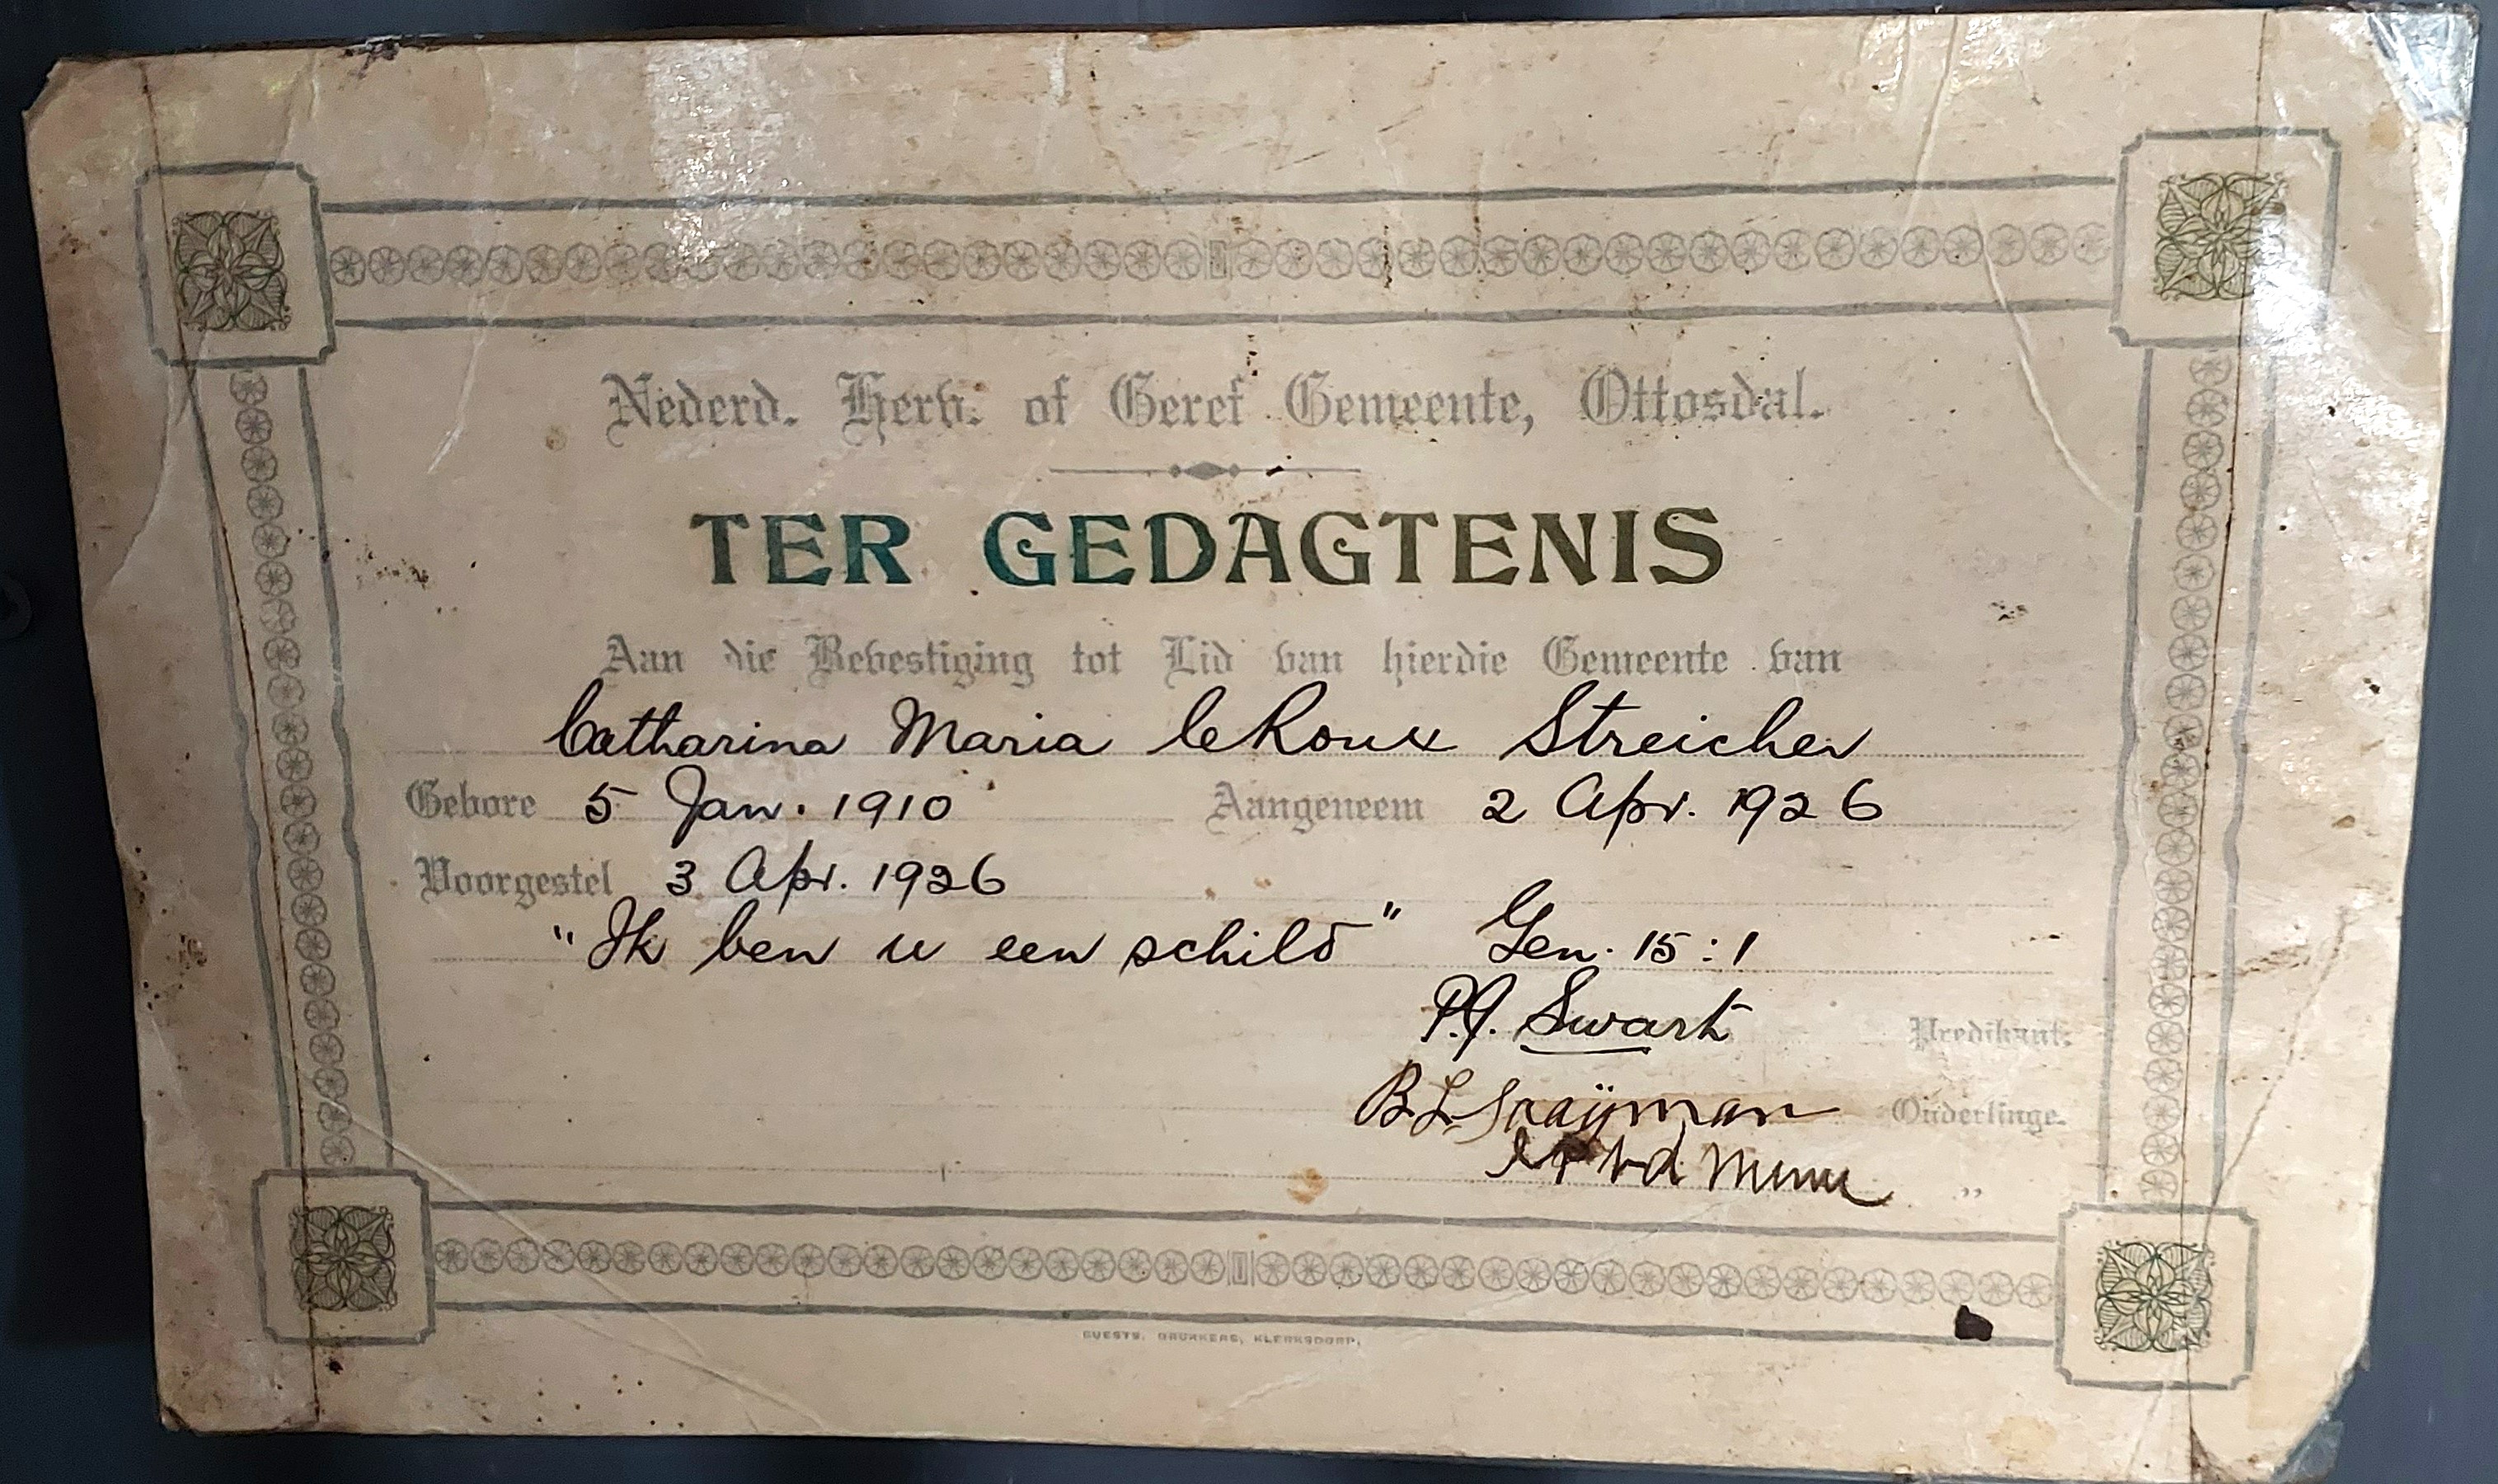 Nederd. Herv. of Geref Gemeente, Ottosdal.
TER GEDAGTENIS
Aan die Bevestiging tot Lid van hierdie Gemeente van
Catharina Maria le Roux Streicher
Gebore 5 Jan. 1910 Aangeneem 2 Apr. 1926
Voorgestel 3 Apr. 1926
"Ik ben u een schild" Gen. 15:1
Swart Predikant.
B L Snaÿman Ouderlinge.
"
GUESTS, DRUKKERS, KLERKSDORP.